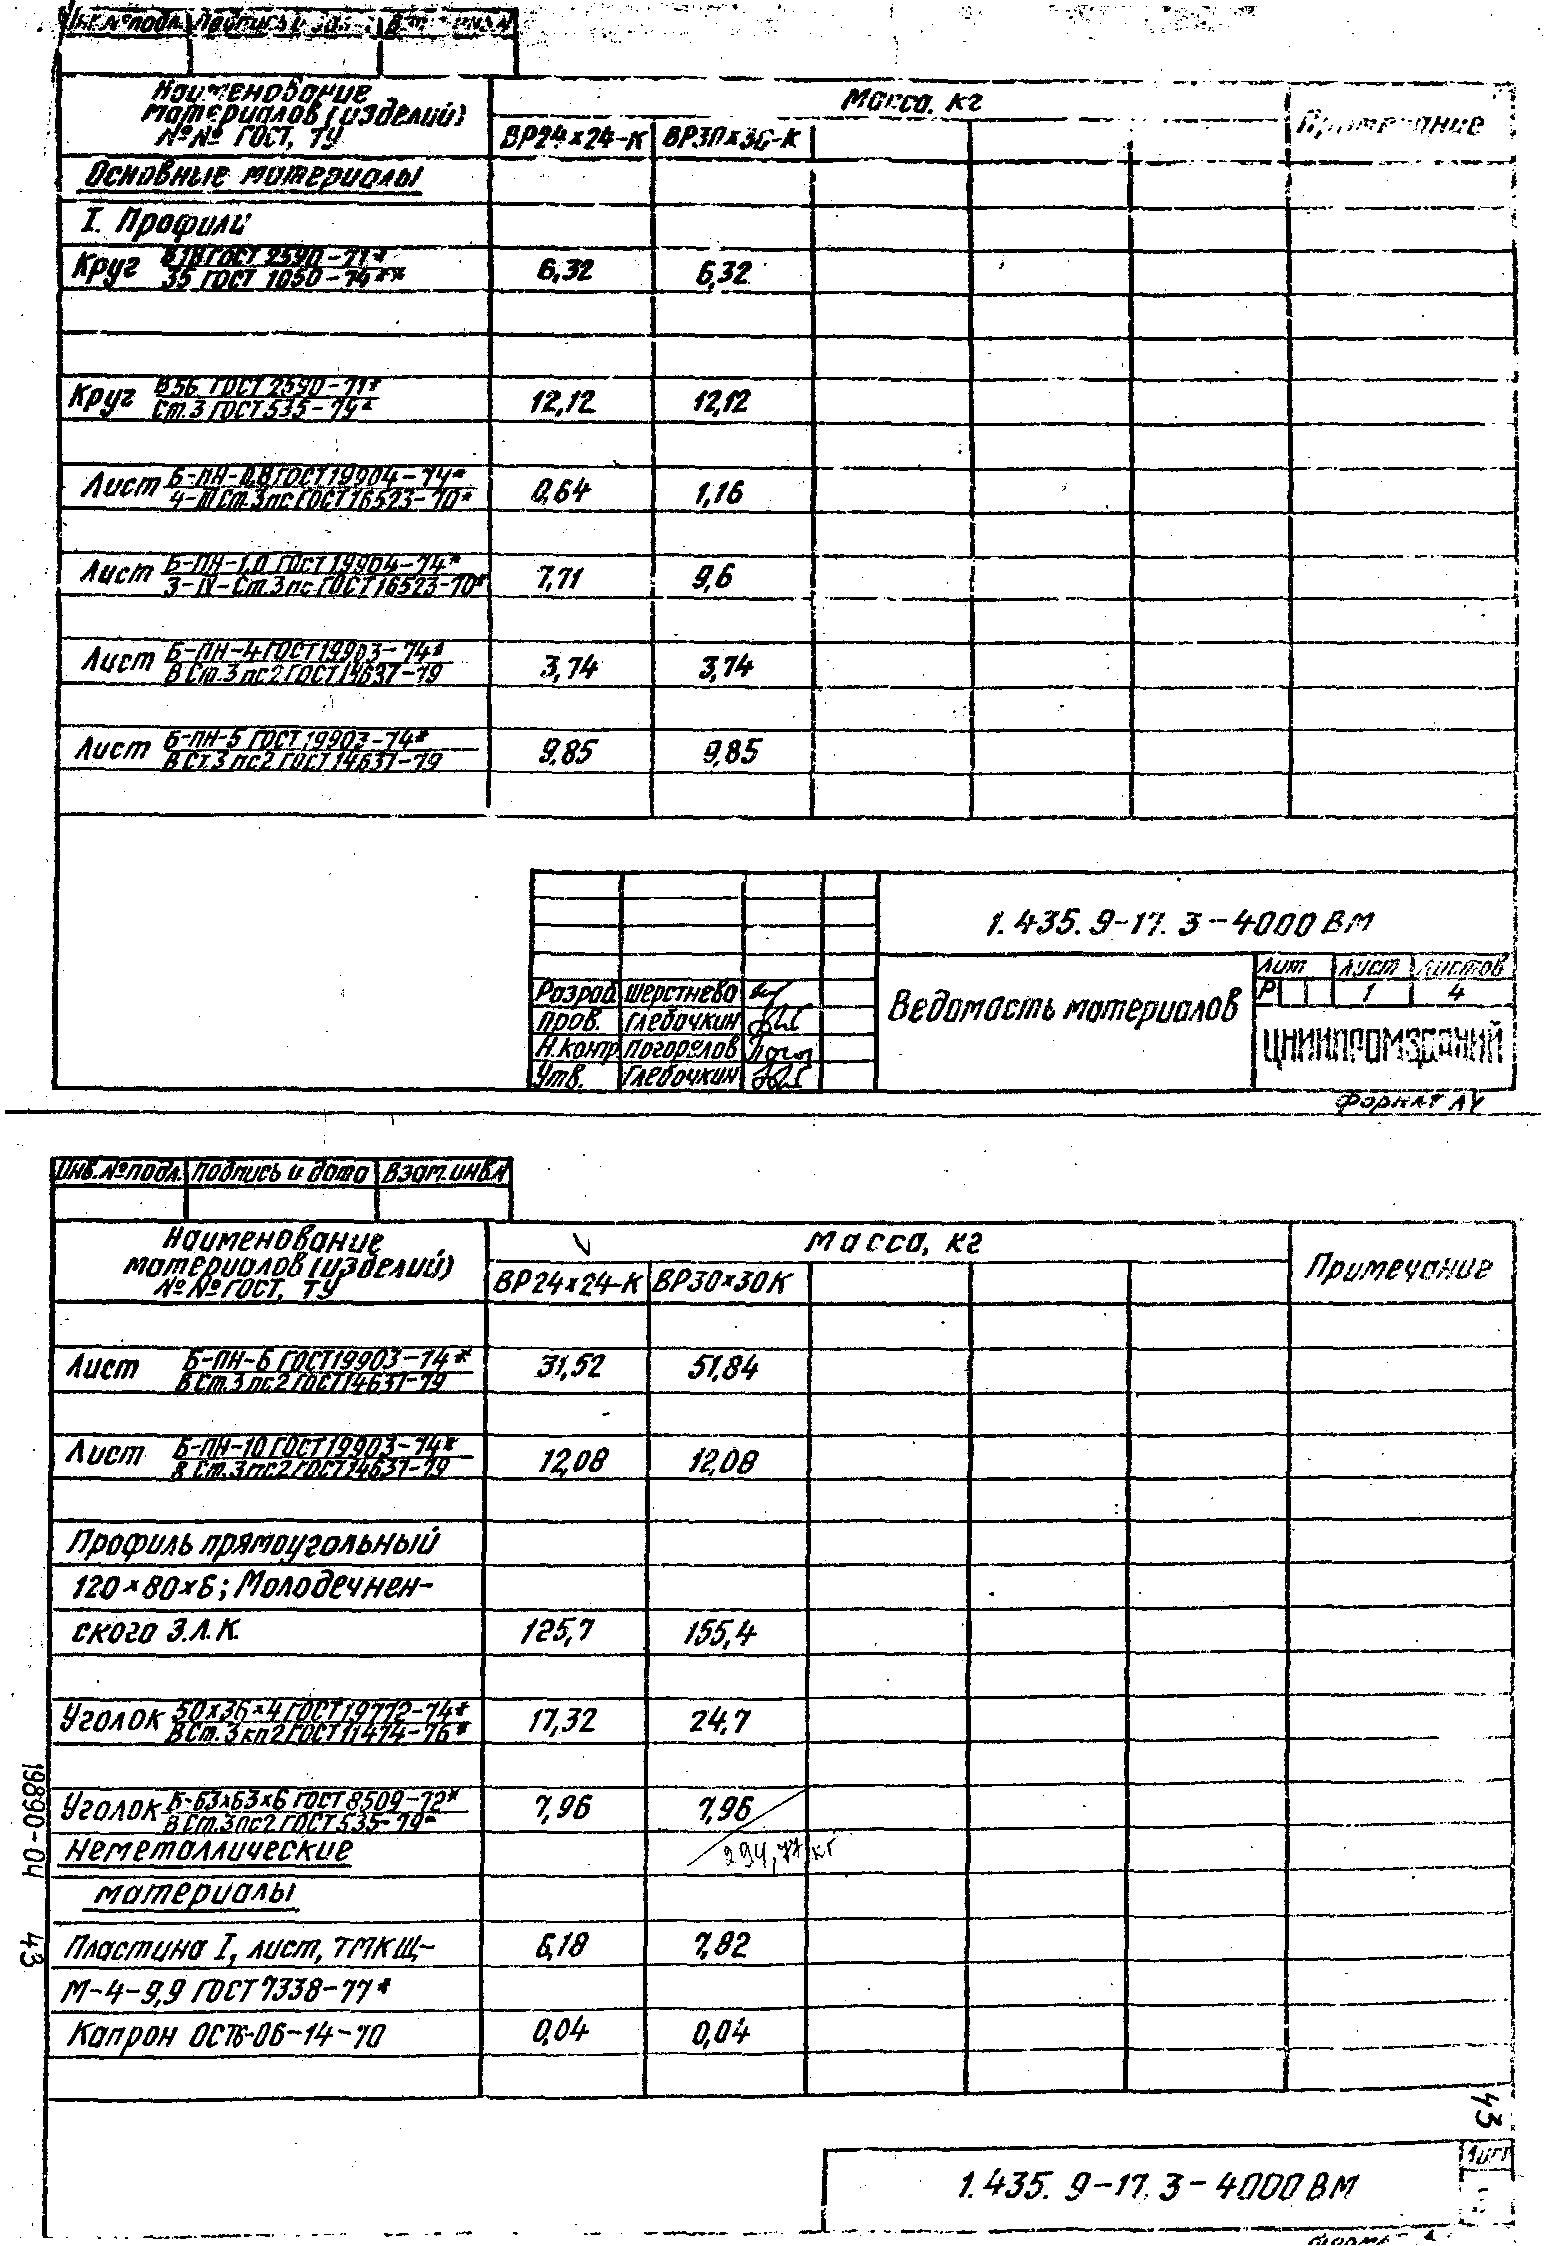 Инв.№подл. Подпись и дата Взам.инв.№
Наименование
материалов (изделий)
№№ ГОСТ, ТУ
Масса, кг
Примечание
ВР24×24-К ВР30×30-К
Основные материалы
I. Профили
Круг В18 ГОСТ 2590-71*
35 ГОСТ 1050-74** 6,32 6,32
Круг В56 ГОСТ 2590-71*
Ст.3 ГОСТ 535-79* 12,12 12,12
Лист Б-ПН-0,8 ГОСТ 19904-74*
4-III Ст.3пс ГОСТ 16523-70* 0,64 1,16
Лист Б-ПН-1,0 ГОСТ 19904-74*
3-IV-Ст.3пс ГОСТ 16523-70* 7,71 9,6
Лист Б-ПН-4 ГОСТ 19903-74*
В Ст.3пс2 ГОСТ 14637-79 3,74 3,74
Лист Б-ПН-5 ГОСТ 19903-74*
В Ст.3пс2 ГОСТ 14637-79 9,85 9,85
1.435.9-17.3-4000 ВМ
Разраб Шерстнева
Пров. Глебочкин
Н.контр Погорелов
Утв. Глебочкин
Ведомость материалов
Лит Лист Листов
Р 1 4
ЦНИИПРОМЗДАНИЙ
Формат А4
Инв.№подл. Подпись и дата Взам.инв.№
Наименование
материалов (изделий)
№№ ГОСТ, ТУ
Масса, кг
Примечание
ВР24×24-К ВР30×30К
Лист Б-ПН-6 ГОСТ 19903-74*
В Ст.3пс2 ГОСТ 14637-79 31,52 51,84
Лист Б-ПН-10 ГОСТ 19903-74*
В Ст.3пс2 ГОСТ 14637-79 12,08 12,08
Профиль прямоугольный
120×80×6; Молодечнен-
ского З.Л.К. 125,7 155,4
Уголок 50×36×4 ГОСТ 19772-74*
В Ст.3кп2 ГОСТ 11474-76* 17,32 24,7
Уголок Б-63×63×6 ГОСТ 8509-72*
В Ст.3пс2 ГОСТ 535-79* 7,96 7,96
Неметаллические
294,77 кг
материалы
Пластина I, лист, ТМКЩ- 6,18 7,82
М-4-9,9 ГОСТ 7338-77*
Капрон ОСТ6-06-14-70 0,04 0,04
19890-04 43
43
1.435.9-17.3-4000 ВМ
Лист